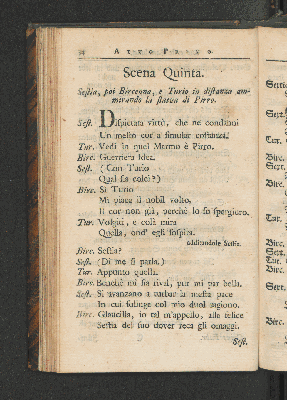 34 ATTO PRIMO
Scena Quinta.
Sestia, poi Bircenna, e Turio in distanza am-
mirando la statua di Pirro.
Sest. Dispietata virtù, che ne condanni
Un mesto cor a simular costanza.
Tur. Vedi in quel Marmo è Pirro.
Birc. Guerriera Idea.
Sest. (Con Turio
Qual sia colei?)
Birc. Sì Turio
Mi piace il nobil volto,
Il cor non già, perchè lo so spergiuro.
Tur. Volgiti, e colà mira
Quella, ond' egli sospira.
additandole Sestia.
Birc. Sestia?
Sest. (Di me si parla.)
Tur. Appunto quella.
Birc. Benchè mi sia rival, pur mi par bella.
Sest. Si avanzano a turbar la mesta pace
In cui seco col mio duol
Birc. Glaucilla, io tal m'appello, alla felice
Sestia del suo dover reca gli omaggi.
Sest.